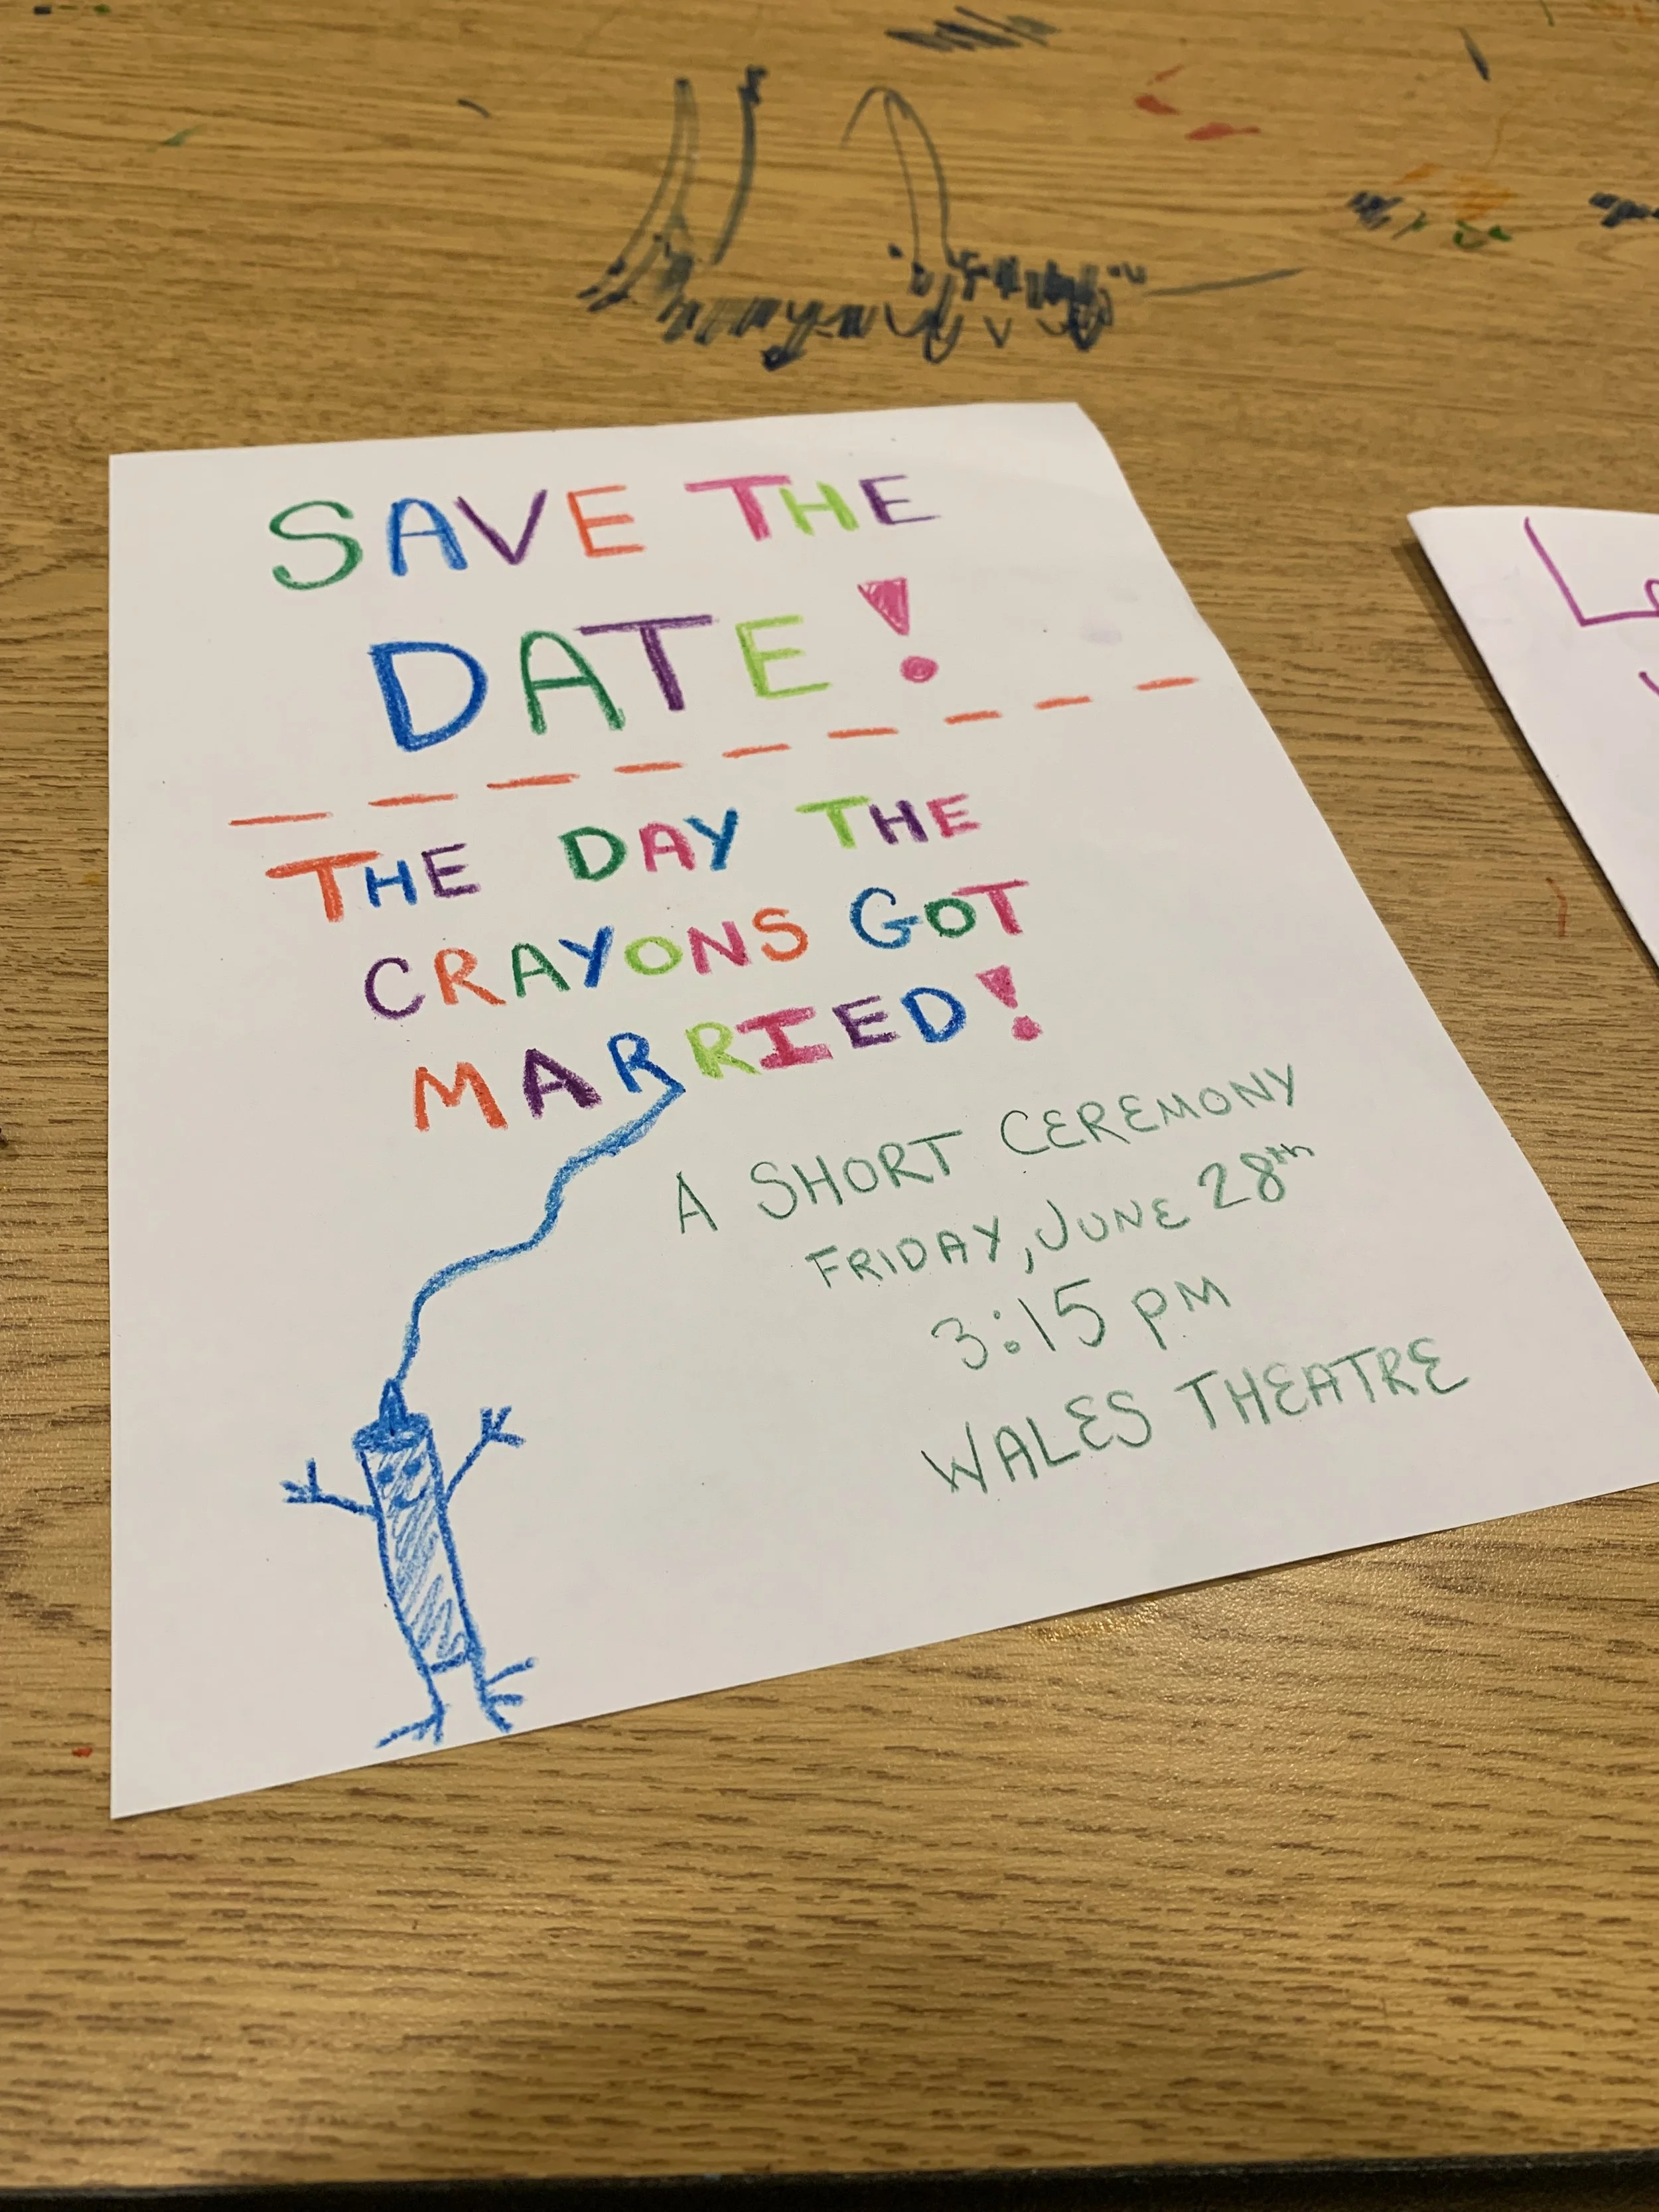 SAVE THE
DATE!
THE DAY THE
CRAYONS GOT
MARRIED!
A SHORT CEREMONY
FRIDAY, JUNE 28th
3:15 PM
WALES THEATRE